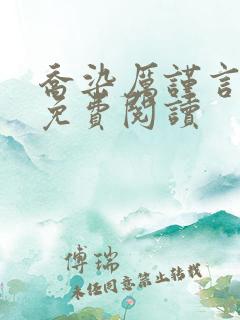 喬染厲謹言
免費閱讀
傅瑞
未經同意禁止轉載